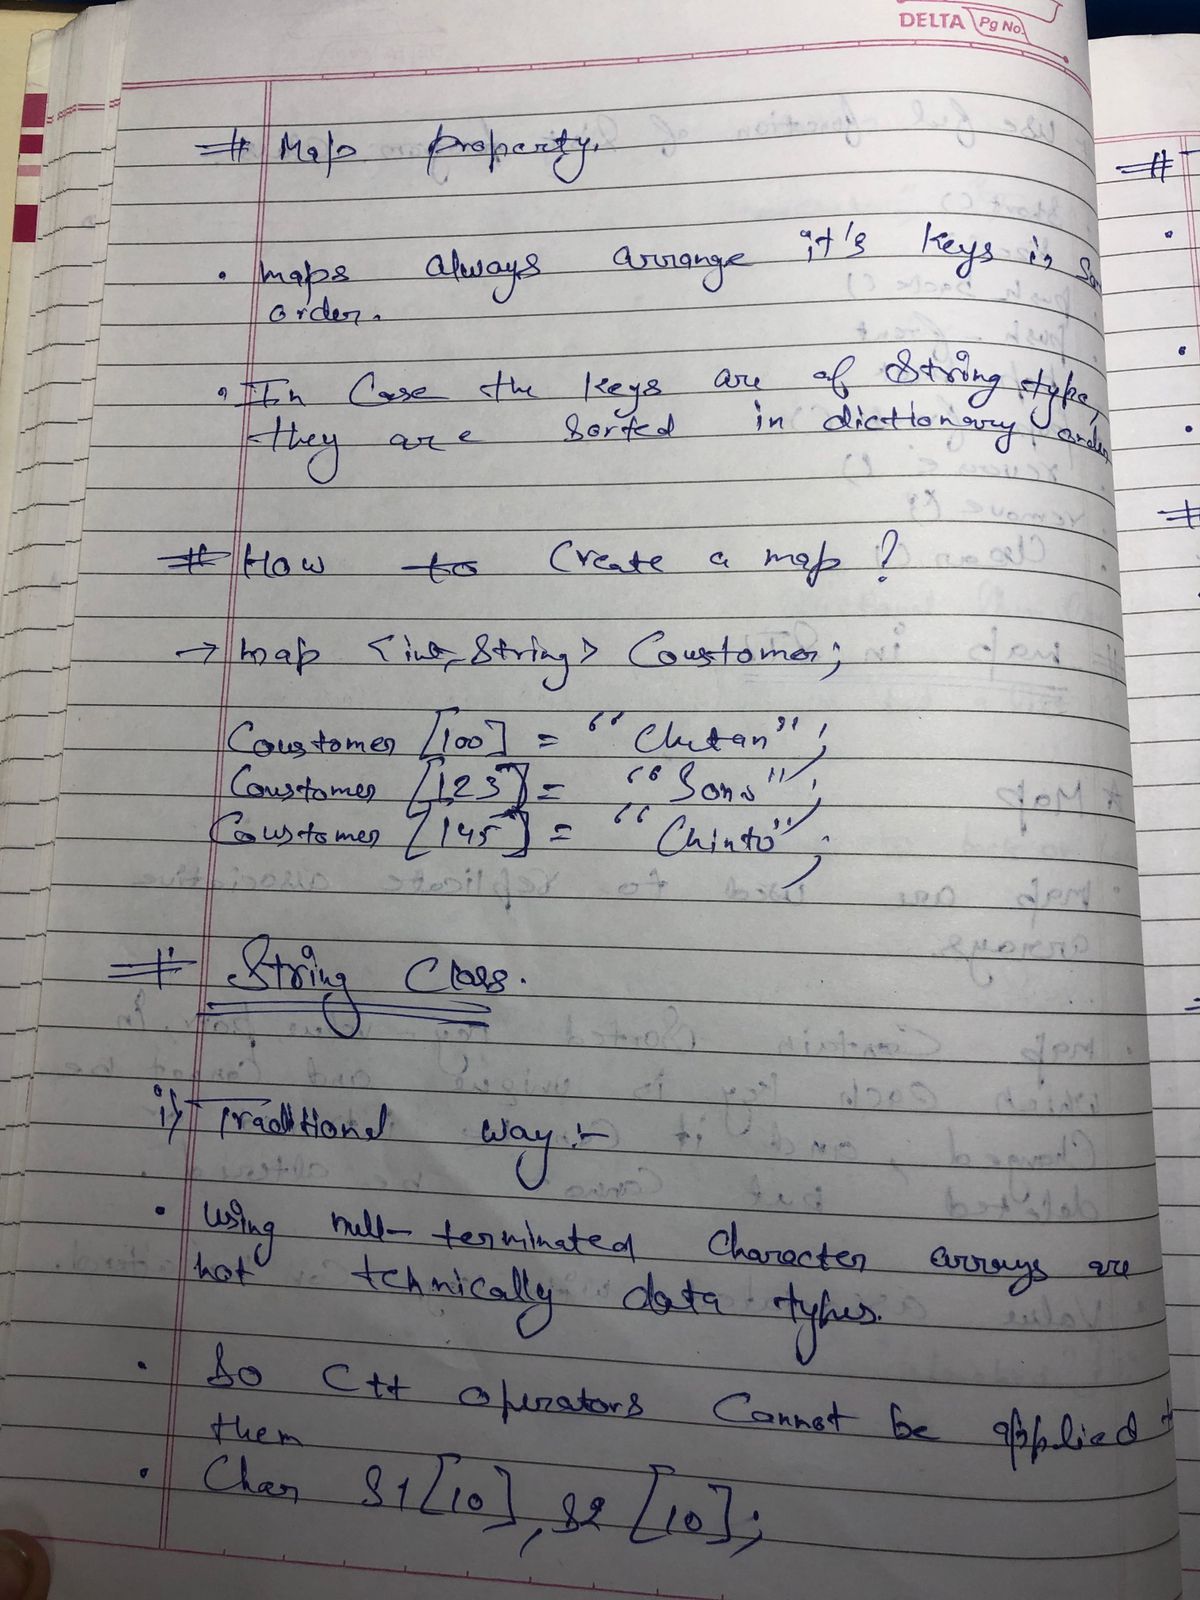 DELTA Pg No.
# Map property.
• maps always arrange it's keys in
order.
• In Case the keys are of String type,
they are sorted in dictionary order
# How to Create a map ?
→ map <int, String> Coustomer;
Coustomer [100] = "Chetan";
Coustomer [123] = "Sono";
Coustomer [145] = "Chinto";
# String Class.
i) Traditional way :-
• using null-terminated Character arrays are
not technically data types.
• So C++ operators Cannot be applied
them
• Char S1[10], S2[10];